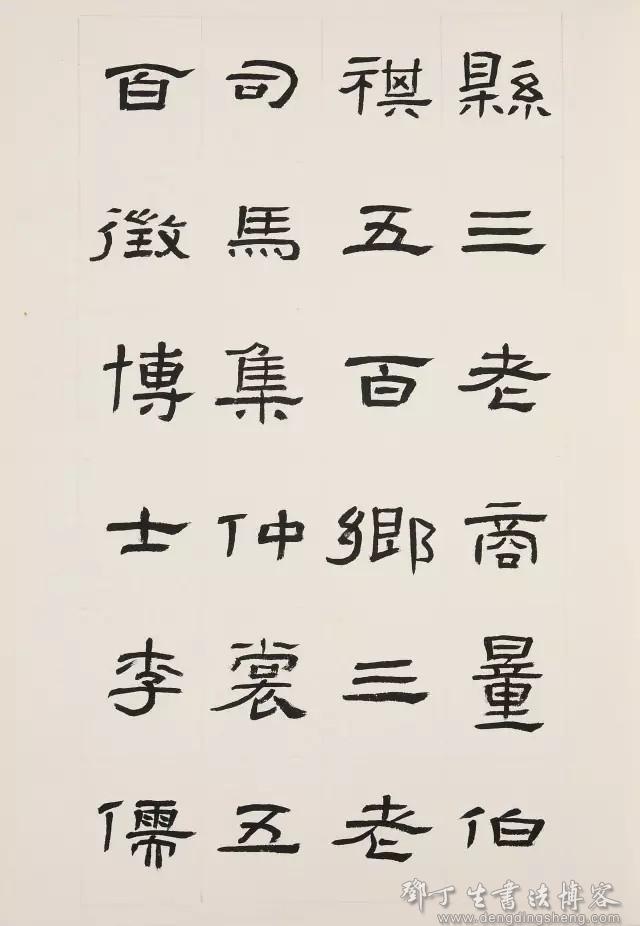 縣三老商量伯
祺五百鄉三老
司馬集仲裳五
百徵博士李儒
鄧丁生書法博客
www.dengdingsheng.com